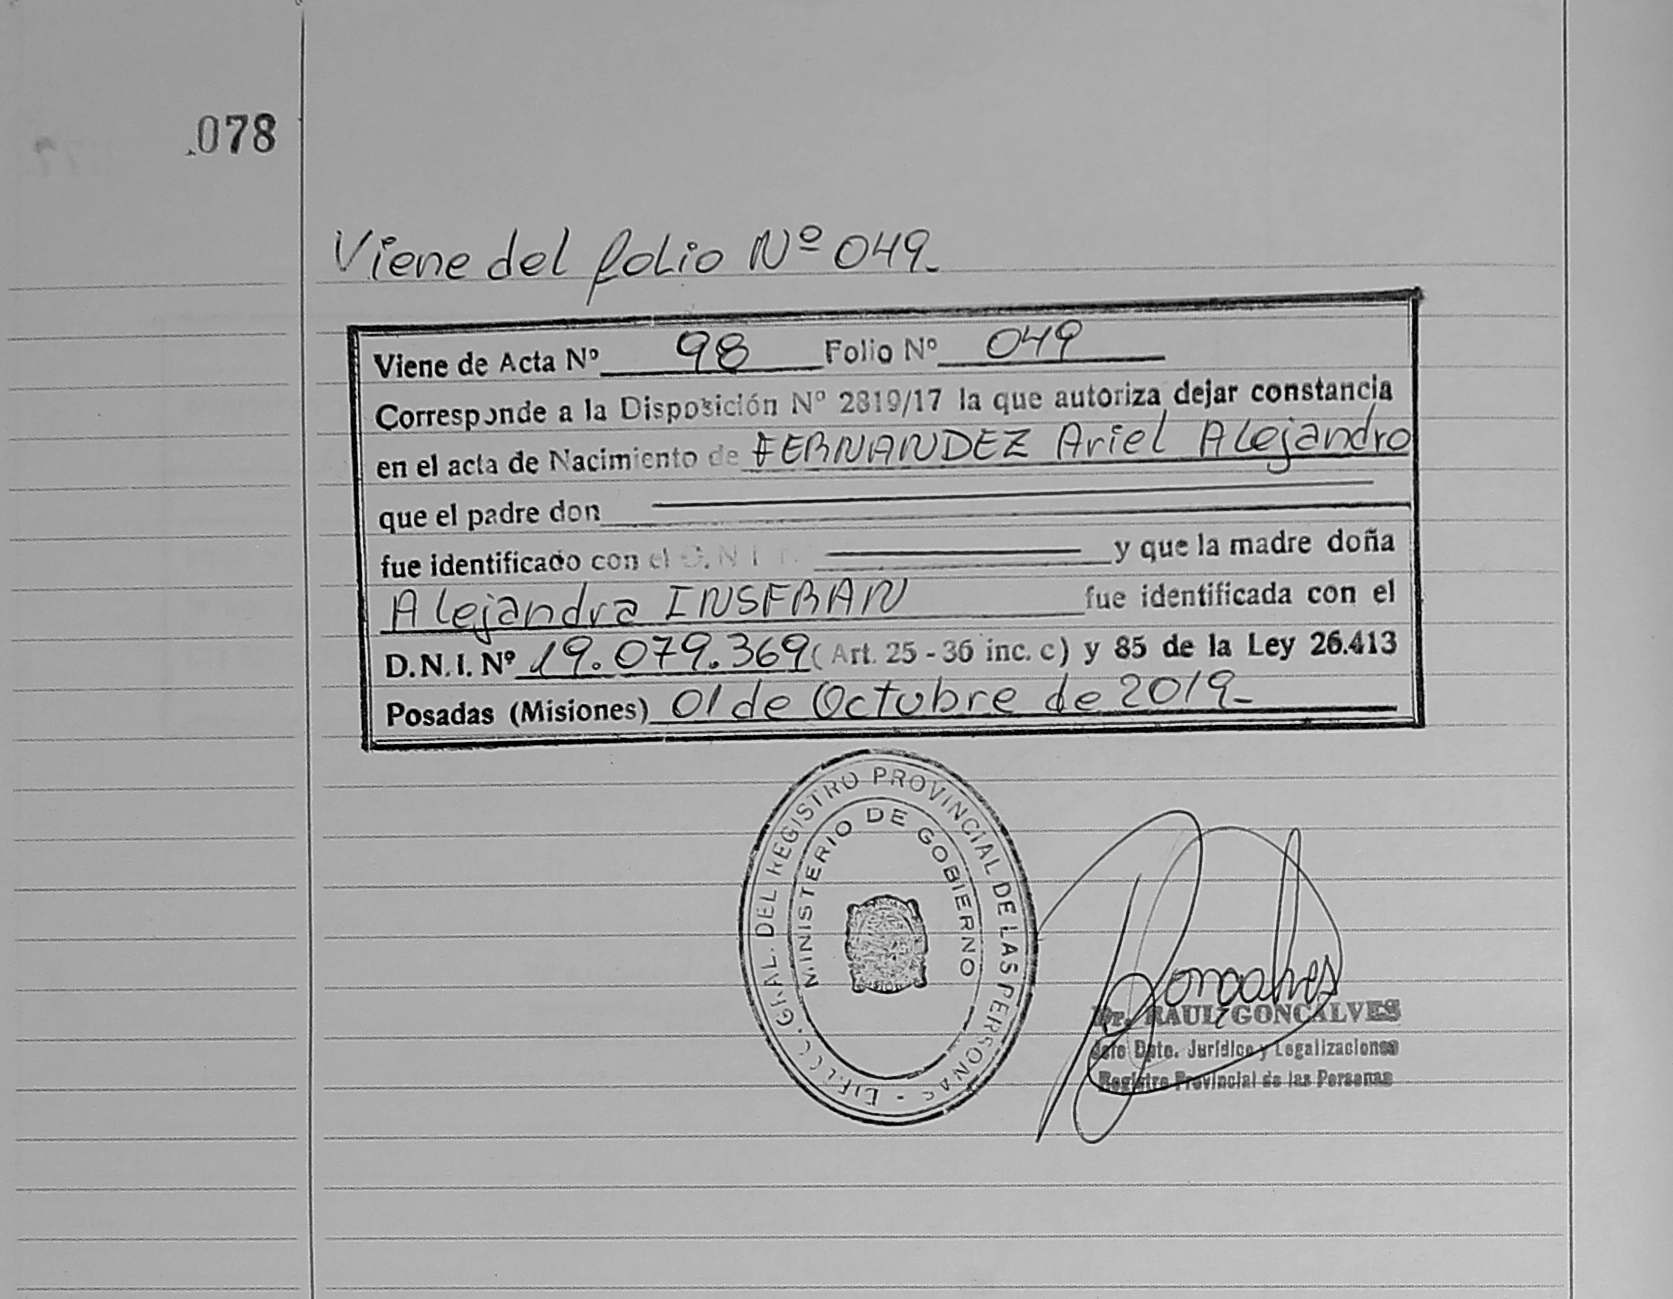 078
Viene del folio Nº 049-
Viene de Acta Nº 98 Folio Nº 049
Corresponde a la Disposición Nº 2819/17 la que autoriza dejar constancia
en el acta de Nacimiento de FERNANDEZ Ariel Alejandro
que el padre don
fue identificado con el D.N.I. y que la madre doña
Alejandra INSFRAN fue identificada con el
D.N.I. Nº 19.079.369 (Art. 25 - 36 inc. c) y 85 de la Ley 26.413
Posadas (Misiones) 01 de Octubre de 2019-
GRAL. DEL REGISTRO PROVINCIAL DE LAS PERSONAS
MINISTERIO DE GOBIERNO
Goncalves
Dr. RAUL GONCALVES
Jefe Dpto. Jurídico y Legalizaciones
Registro Provincial de las Personas